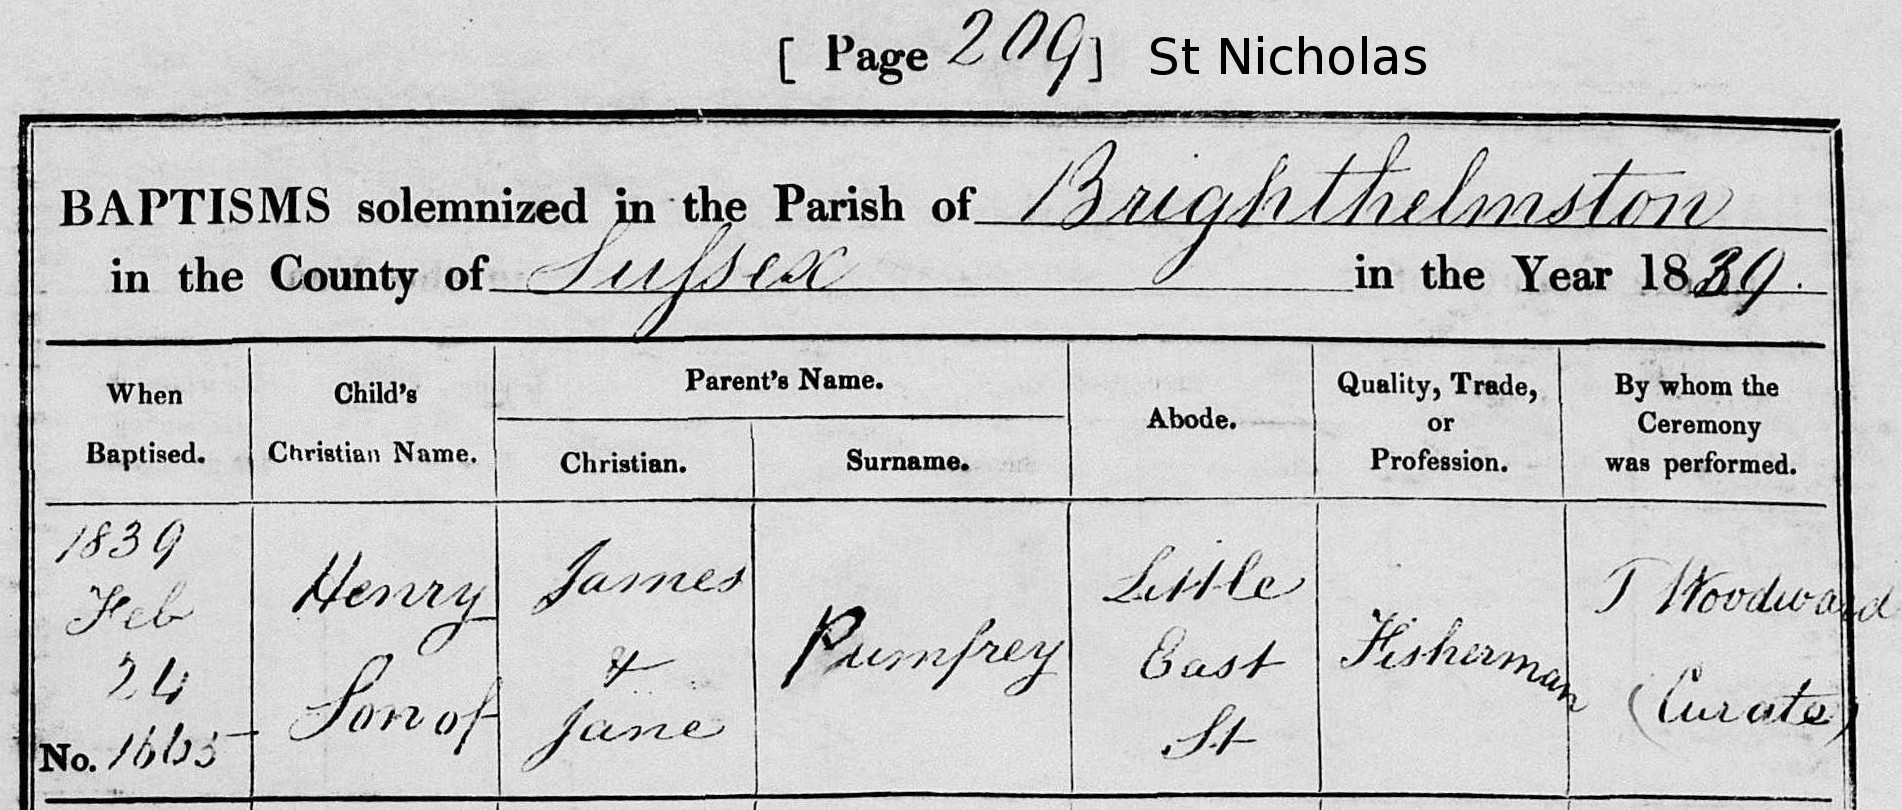 [ Page 209 ] St Nicholas
BAPTISMS solemnized in the Parish of Brighthelmston
in the County of Sussex in the Year 1839.
When
Baptised.
Child's
Christian Name.
Parent's Name.
Christian.
Surname.
Abode.
Quality, Trade,
or
Profession.
By whom the
Ceremony
was performed.
1839
Feb
24
No. 1665
Henry
Son of
James
&
Jane
Pumfrey
Little
East
St
Fisherman
T Woodward
(Curate)